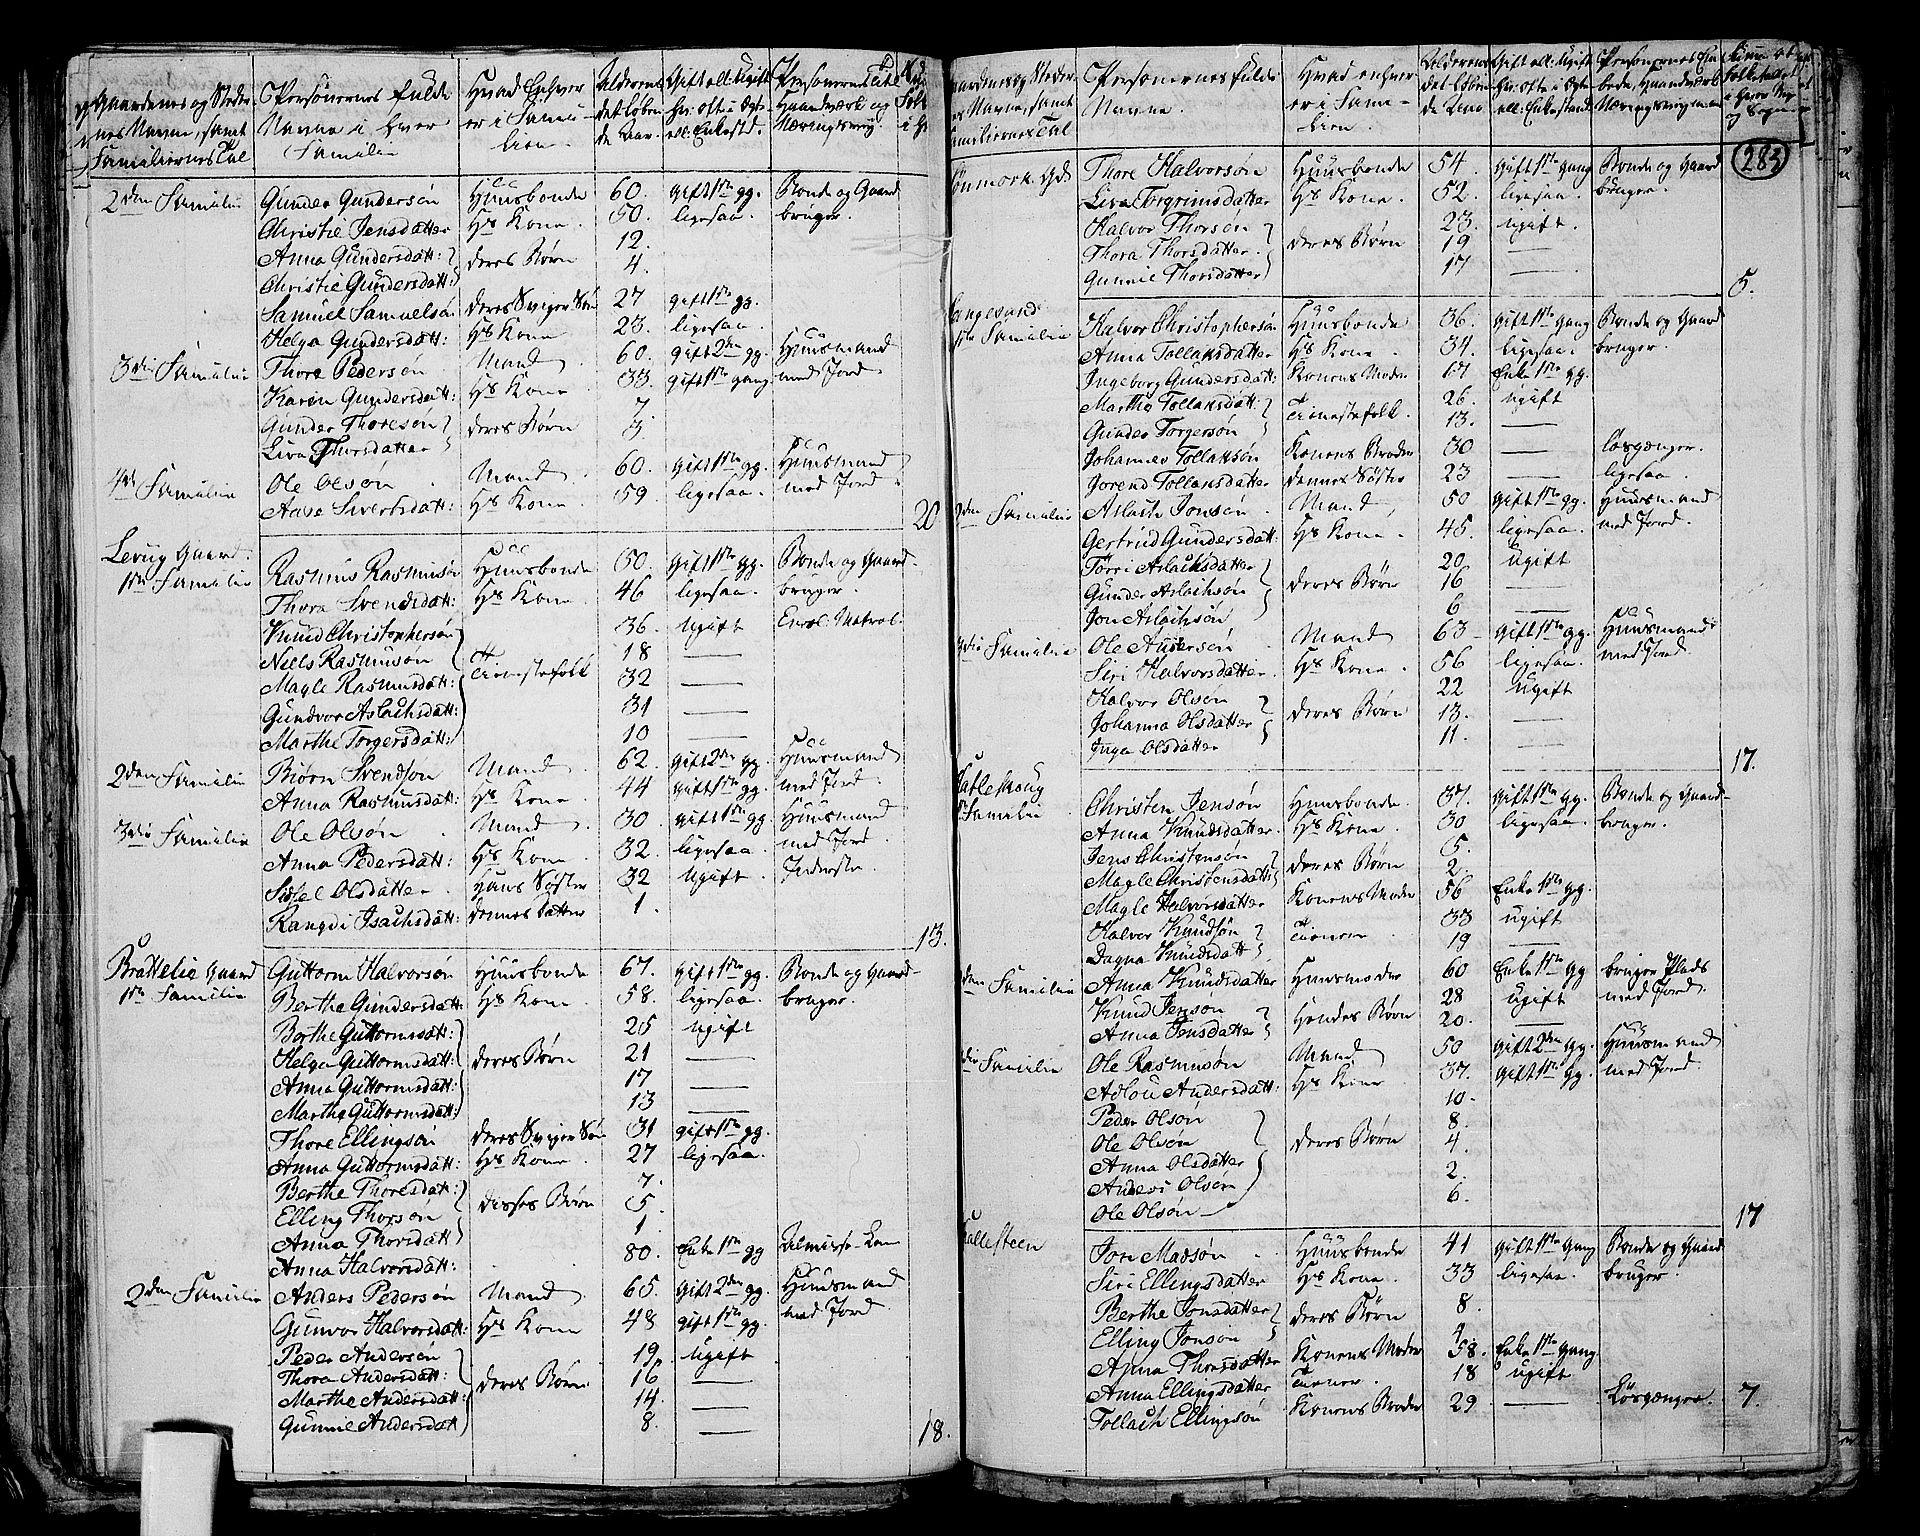 Gaardenes og Stedernes Navne, samt Familiernes Tal | Personernes fulde Navne i hver Familie | Hvad Enhver er i Familien | Alderens det Løbende Aar | Gift ell: Ugift Hv: ofte i Ægte ell: Enkestd. | Personernes Haandværk og Næringsvej
2den Familie Gunder Gundersøn Huusbonde 60. gift 1ste gg. Bonde og Gaard
Christie Jensdatter Hs Kone. 50. ligesaa. bruger.
Anna Gundersdatt: deres Børn 12.
Christie Gundersdatt: 4.
Samuel Samuelsøn deres Sviger Søn 27 gift 1ste gg.
Helga Gundersdatt: Hs Kone 23. ligesaa.
3die Familie Thore Pedersøn Mand 60. gift 2den gg. Huusmand
Karen Gundersdatt: Hs Kone 33. gift 1ste gang med Jord
Gunder Thoresøn deres Børn 7.
Liva Thorsdatter 3.
4de Familie Ole Olsøn Mand 60. gift 1ste gg. Huusmand
Aase Sivertsdatt: Hs Kone. 59. ligesaa. med Jord.
20
Levug Gaard.
1ste Familie Rasmus Rasmusøn Huusbonde 50. gift 1ste gg. Bonde og Gaard-
Thora Svendsdatt: Hs Kone. 46 ligesaa. bruger.
Knud Christophersøn Tienestefolk 36. Ugift Enrol: Matros.
Niels Rasmusøn 18 —
Magle Rasmusdatt: 32 —
Gundvor Aslachsdatt: 31 —
Marthe Torgersdatt: 10 —
2den Familie Biørn Svendsøn Mand 62. gift 2den gg. Huusmand
Anna Rasmusdatt: Hs Kone 44 gift 1ste gg. med Jord.
3die Familie Ole Olsøn Mand 30. gift 1ste gg. Huusmand
Anna Pedersdatt: Hs Kone 32. ligesaa. med Jord.
Sissel Olsdatter Hans Søster 32 Ugift. Inderste
Rangdi Isachsdatt: dennes Datter 1.
13.
Brattelie Gaard Guttorm Halvorsøn Huusbonde 67. gift 1ste gg. Bonde og Gaard-
1ste Familie Berthe Gundersdatt: Hs Kone. 58. ligesaa. bruger.
Berthe Guttormsdatt: 25 ugift
Helga Guttormsdatt: deres Børn 21 —
Anna Guttormsdatt: 17 —
Marthe Guttormsdatt: 13 —
Thore Ellingsøn deres Sviger Søn 31 gift 1ste gg.
Anna Guttormsdatt: Hs Kone. 27 ligesaa.
Berthe Thoresdatt: disses Børn 7.
Elling Thorsøn 5
Anna Thorsdatt: 1
Anna Halvorsdatt: 80. Enke 1ste gg Almisse-Lem
2den Familie Anders Pedersøn Mand 65. gift 2den gg. Huusmand
Gunvor Halvorsdatt: Hs Kone 48 gift 1ste gg. med Jord
Peder Andersøn 19. ugift
Thora Andersdatt: deres Børn 16 —
Marthe Andersdatt: 14. —
Gunnie Andersdatt 8. —
18.
Personernes fulde Navne. | Hvad enhver er i Familien. | Alderens det Løbende Aar | Gift ell: Ugift Hv: ofte i Ægte ell: Enkestand.
283
Thore Halvorsøn Huusbonde 54. gift 1ste gang Bonde og Gaard
Liva Torgrimsdatter Hs Kone. 52. ligesaa. bruger.
Halvor Thorsøn 23. ugift.
Thora Thorsdatter. deres Børn 19 —
Gunnie Thorsdatter 17 —
5.
Langesund
1ste Familie Halvor Christophersøn Huusbonde 36. gift 1ste gang Bonde og Gaard
Anna Tollaksdatter Hs Kone. 34. ligesaa. bruger.
Ingeborg Gundersdatt: Konens Moder Enke 1ste gg.
Marthe Tollaksdatt: Tienestefolk. 26. ugift
Gunder Torgersøn 13. —
Johannes Tollaksøn Konens Broder 30 — løsgænger.
Jorend Tollaksdatter dennes Søster 23 — ligesaa.
2den Familie Aslach Jonsøn Mand 50 gift 1ste gg. Huusmand
Gertrud Gundersdatt: Hs Kone. 45. ligesaa. med Jord.
Torri Aslachsøn 20. ugift
Gunder Aslachsøn deres Børn 16 —
Jon Aslachsøn 6 —
3die Familie Ole Andersøn Mand 63 gift 1ste gg. Huusmand
Siri Halvorsdatter Hs Kone. 56 ligesaa. med Jord
Halvor Olsøn 22 ugift
Johanna Olsdatter deres Børn 13. —
Inga Olsdatter 11. —
17.
1ste Familie Christen Jensøn Huusbonde 37. gift 1ste gg. Bonde og Gaard-
Anna Knudsdatter Hs Kone. 30 ligesaa. bruger.
Jens Christensøn deres Børn 5.
Magle Christensdatt: 2.
Magle Halvorsdatter Konens Moder 56 Enke 1ste gg.
Halvor Knudsøn Tienere 33 ugift
Dagna Knudsdatt 19 —
2den Familie Anna Knudsdatter Huusmoder 60 Enke 1ste gg bruger Plads
Knud Jensøn Hendes Børn 28 ugift med Jord.
Anna Jensdatter 20. —
3die Familie Ole Rasmusøn Mand 50 gift 2den gg. Huusmand
Adlou Andersdatt: Hs Kone 37. gift 1ste gg. med Jord.
Peder Olsøn 10.
Ole Olsøn 8.
Anna Olsdatter deres Børn 4.
Anders Olsøn 2.
Ole Olsøn 6.
17
Jon Madsøn Huusbonde 41 gift 1ste gang Bonde og Gaard
Siri Ellingsdatter Hs Kone. 33 ligesaa. bruger.
Berthe Jonsdatter deres Børn 8.
Elling Jonsøn 4.
Anna Thorsdatter Konens Moder 58. Enke 1ste gang
Anna Ellingsdatter Tiener. 18 ugift
Tollach Ellingsøn Konens Broder 29 — Løsgænger. 7.